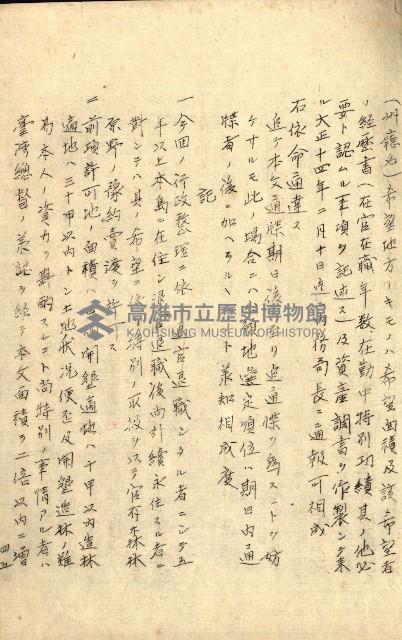 (州廳ハ)希望地方ノキモノハ希望面積及該希望者
ノ經歷書(在官在職年数在勤中特別功績其ノ他必
要ト認ムル事項ヲ記述ス)及資產調書ヲ作製シ来
ル大正十四年二月十日迄ニ務司長ニ通報可相成
右依命通達ス
追テ本文通牒期日後ヨリ追通牒ヲ為スコトヲ妨
ケサルモ此ノ場合ニハ土地選定順位ハ期日内通
牒者ノ後ニ加ヘラルヽト承知相成度
記
一今回ノ行政整理ニ依リ退官退職シタル者ニシテ五
年以上本島ニ在住シ退官退職後尚引續永住スル者ニ
對シテハ其ノ希望ニ特別ノ取扱ヲ以テ官有森林
原野ノ豫約賣渡ヲ許可ス
二前項許可地ノ面積ハ開墾適地ハ十甲以内造林
適地ハ三十甲以内トシ土地狀況便否及開墾造林ノ難
易本人ノ資力ヲ斟酌スルコト尚特別ノ事情アル者ハ
臺灣總督ノ承認ヲ經テ本文面積ヲ二倍以内ニ增
四五
高雄市立歷史博物館
KAOHSIUNG MUSEUM OF HISTORY